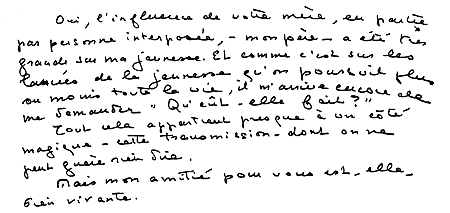 Oui, l'influence de votre mère, en partie
par personne interposée, - mon père - a été très
grande sur ma jeunesse. Et comme c'est sur les
lancées de la jeunesse qu'on poursuit plus
ou moins toute la vie, il m'arrive encore de
me demander "Qu'eût-elle fait?"
Tout cela appartient presque à un côté
magique - cette transmission - dont on ne
peut guère rien dire.
Mais mon amitié pour vous est-elle
bien vivante.